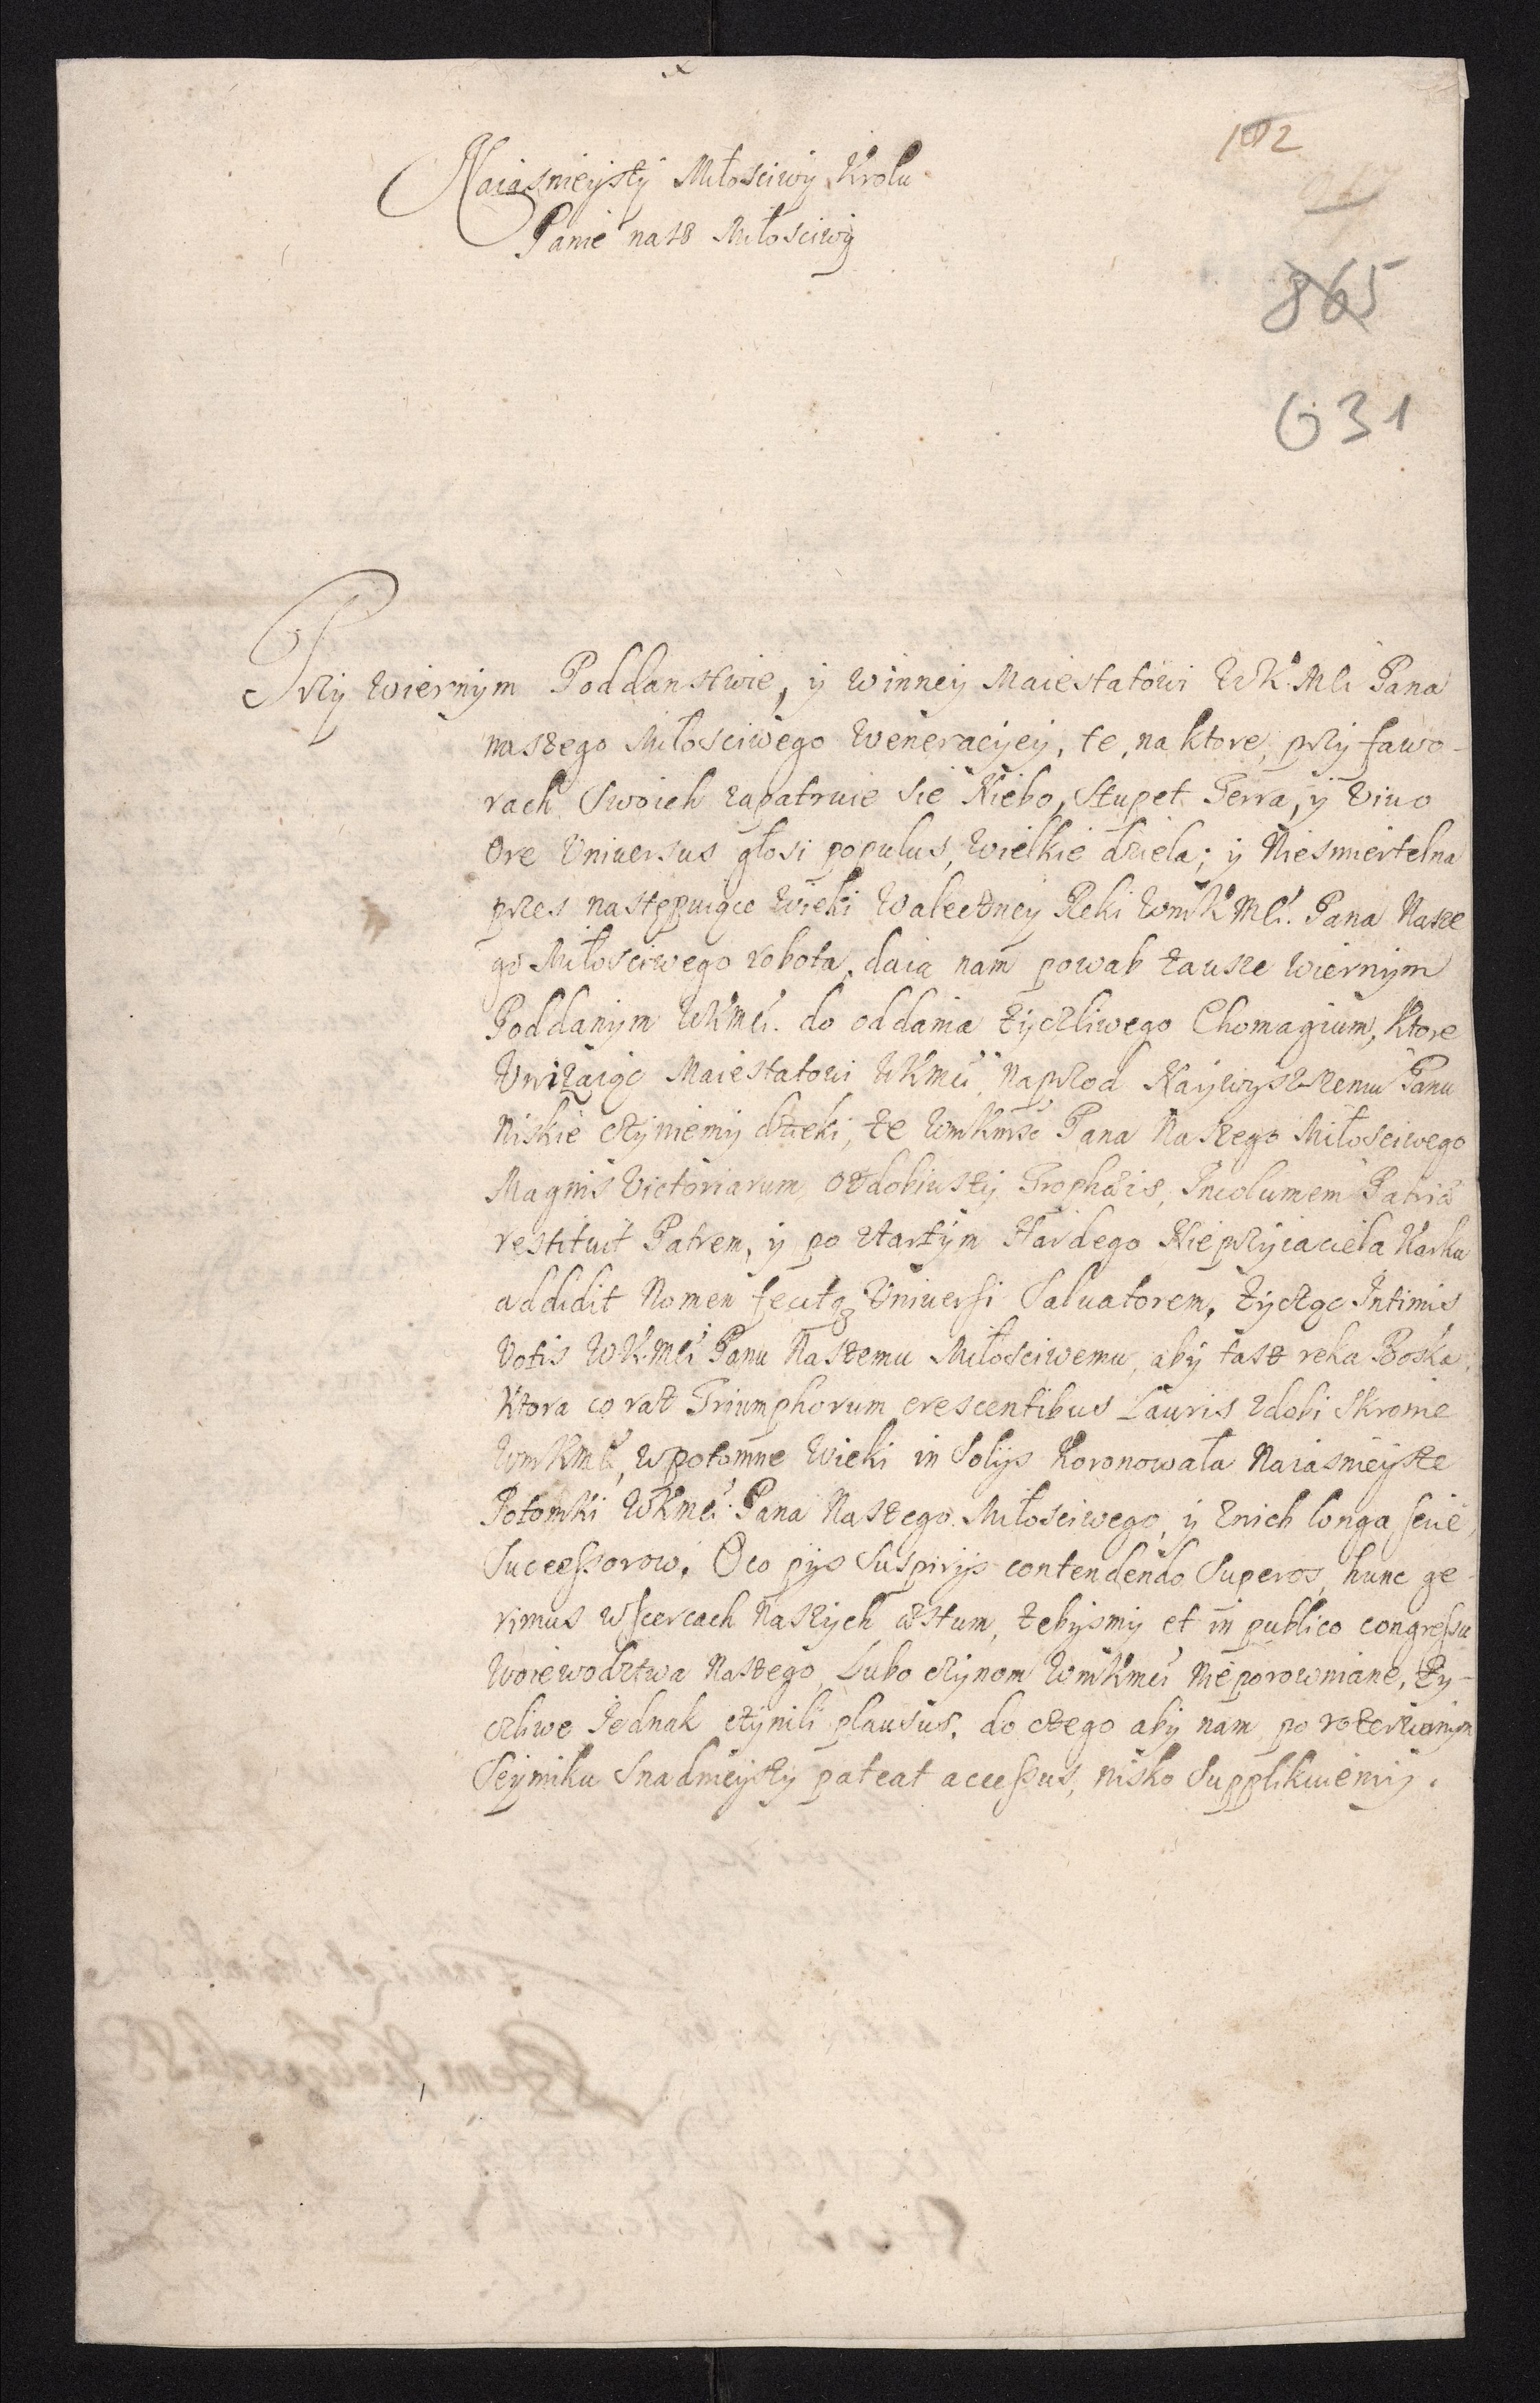 102
Naiasnieyszy Miłosciwy Krolu
Panie nasz Miłosciwy
865
631
Przy wiernym Poddanstwie, y winney Maiestatowi WK. Mći Pana
naszego Miłosciwego weneracyey, te, na ktore, przy fawo-
rach Swoich zapatruie sie Niebo, Stupet Terra, y vivo
Ore Universus głosi populus, wielkie dzieła; y Niesmiertelna
przes nastęquiące wieki waleczney Reki WmKMći. Pana Nasze
go Miłosciwego robota, daia nam powab zausze wiernym
Poddanym WKMći. do oddania zyczliwego Chomagium, ktore
Unizaiąc Maiestatowi WKmći naprzod Naywyszszemu Panu
niskie czyniemy dzieki, ze WmKmsc Pana Naszego Miłosciwego
Magnis Victoriarum ozdobiuszy Trophæis, Incolumem Patriæ
restituit Patrem, y po startym Hardego Nieprzyiaciela Karku
addidit Nomen fecitq Universi Salvatorem, Zycząc Intimis
Votis WKMći Panu Naszemu Miłosciwemu, aby tasz reka Boska,
ktora co raz Triumphorum crescentibus Lauris zdobi Skronie
WmKmći, w potomne wieki in Solijs koronowała Naiasnieysze
Potomki WKmći. Pana Naszego Miłosciwego, y znich longa serie,
Successorow. O co pijs Suspirijs contendendo Superos, hunc ge-
rimus w sercach Naszych æstum, zebysmy et in publico congressu
Woiewodztwa Naszego, Lubo czynom WmKmći nieporowniane, zy-
czliwe Iednak czynili plausus, do czego aby nam po rozerwanym
Seymiku Snadnieyszy pateat accessus, nisko Supplikuiemy.